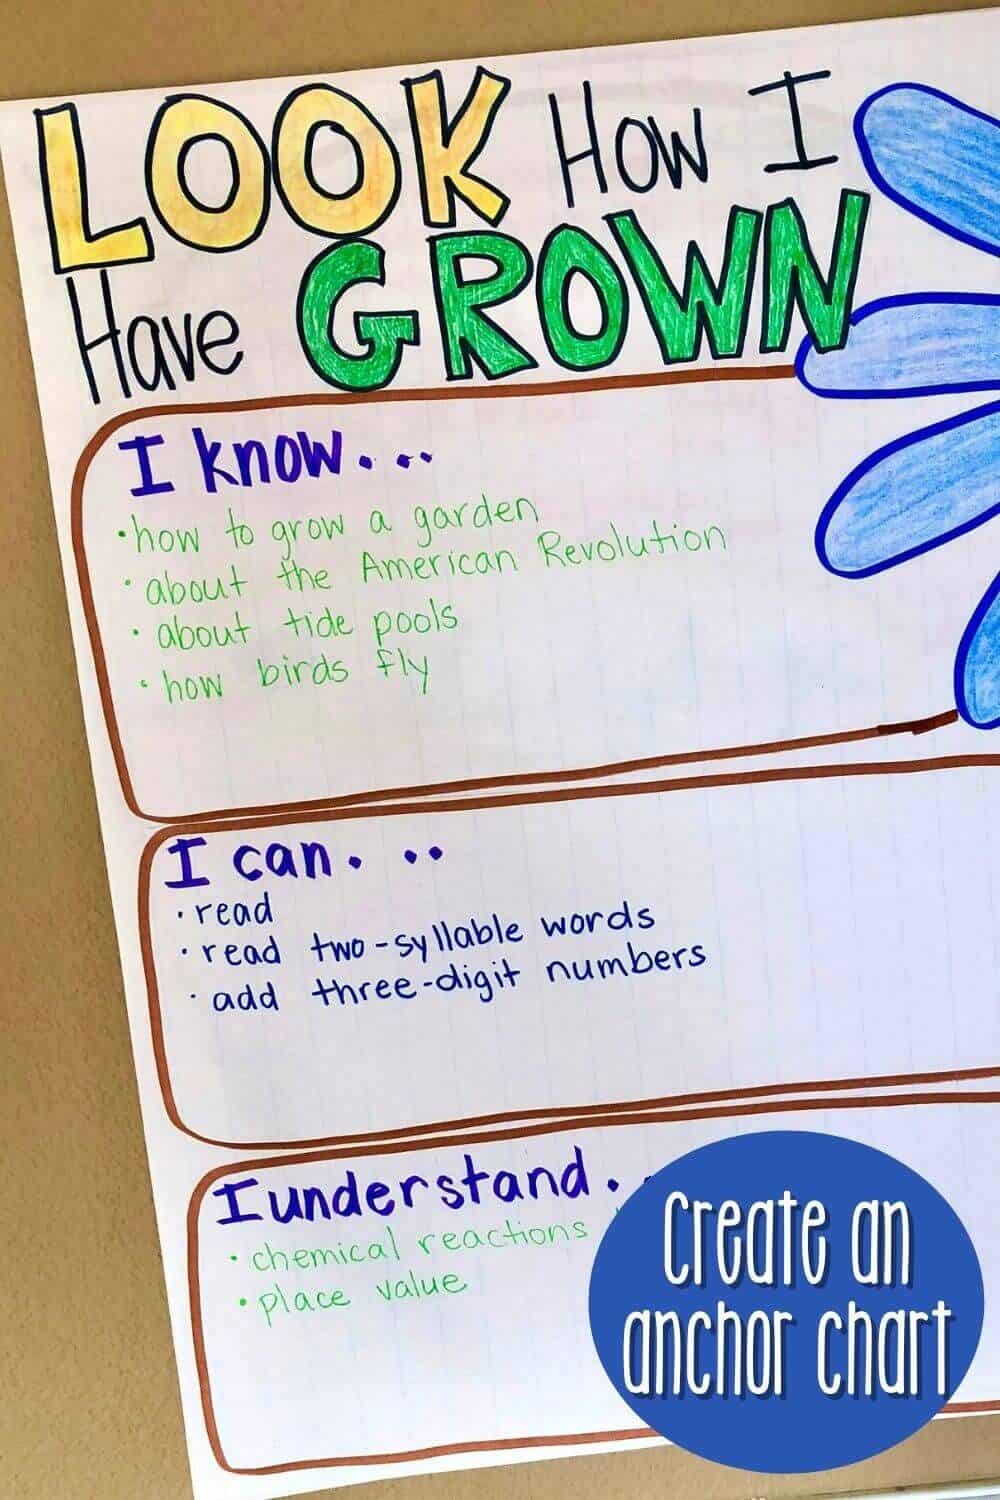 LOOK How I
Have GROWN
I know...
• how to grow a garden
• about the American Revolution
• about tide pools
• how birds fly
I can...
• read
• read two-syllable words
• add three-digit numbers
I understand.
• chemical reactions
• place value
Create an
anchor chart